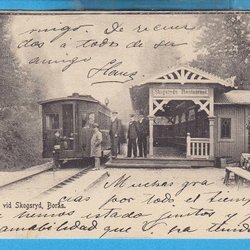 migo. De recuer
dos a todos de su
amigo
Hans
Skogsryds Restaurant
vid Skogsryd, Borås.
Muchas gra
cias por todo el tiempo
hemos estado juntos y
amabilidad que